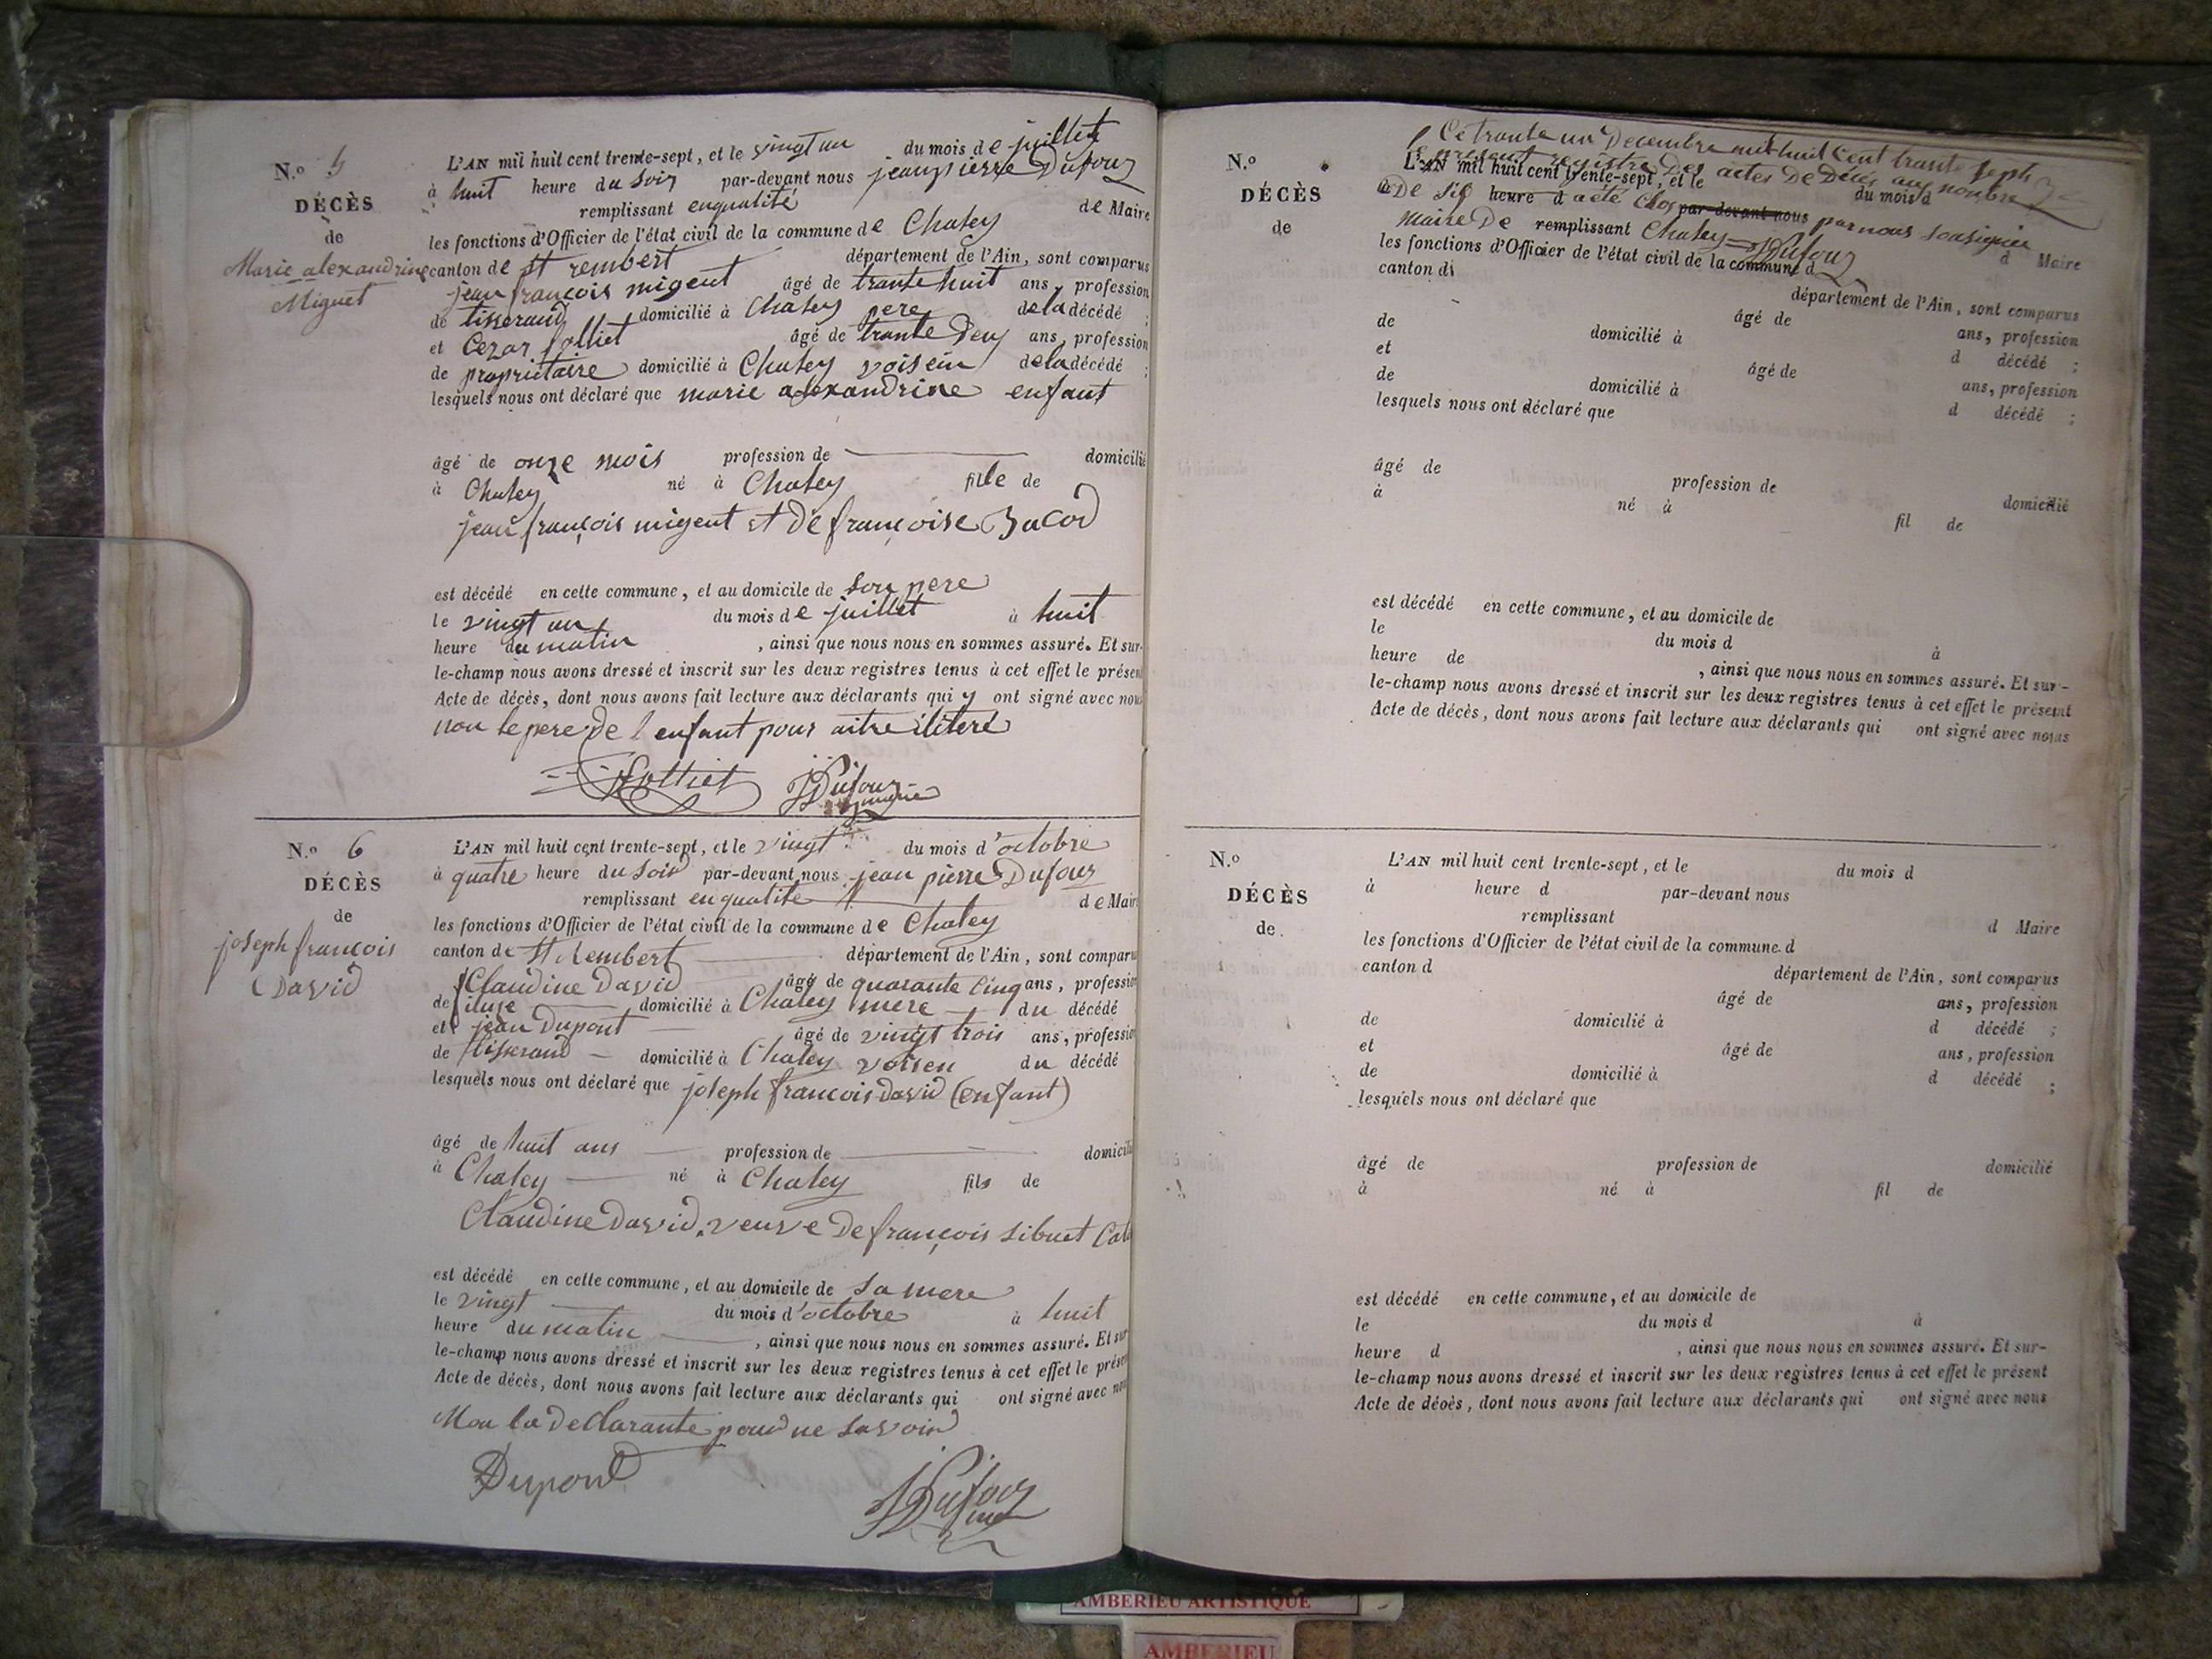 N.º 5
DÉCÈS
de
Marie alexandrine
Miguet
L'AN mil huit cent trente-sept, et le vingt un du mois de juillet
à huit heure du soir par-devant nous jean pierre Dufour
remplissant enqualité de Maire
les fonctions d'Officier de l'état civil de la commune de Chaley
canton de St rembert département de l'Ain, sont comparus
jean françois migent âgé de trante huit ans, profession
de tisserand domicilié à Chaley pere de la décédé ;
et Cezar jolliet âgé de trante deux ans, profession
de proprietaire domicilié à Chaley voisein de la décédé ;
lesquels nous ont déclaré que marie alexandrine enfant
âgé de onze mois profession de domicilié
à Chaley né à Chaley fille de
jean françois migent et De françoise Jacod
est décédé en cette commune, et au domicile de son pere
le vingt un du mois de juillet à huit
heure du matin , ainsi que nous nous en sommes assuré. Et sur-
le-champ nous avons dressé et inscrit sur les deux registres tenus à cet effet le présen
Acte de décès, dont nous avons fait lecture aux déclarants qui y ont signé avec nou
non le pere de l enfant pour aitre ilitere
Dufour maire
N.º 6
DÉCÈS
de
joseph francois
David
L'AN mil huit cent trente-sept, et le vingt du mois d'octobre
à quatre heure du Soir par-devant nous jean pierre Dufour
remplissant enqualité de Mair
les fonctions d'Officier de l'état civil de la commune de Chaley
canton de St Rembert département de l'Ain, sont comparu
Claudine David âgé de quarante cinq ans, profession
de domicilié à Chaley mere du décédé
et jean Dupont âgé de vingt trois ans, profession
de tisserand domicilié à Chaley voisen du décédé
lesquels nous ont déclaré que joseph francois David (enfant)
âgé de huit ans profession de domicili
à Chaley né à Chaley fils de
Claudine David veuve De françois sibuet
est décédé en cette commune, et au domicile de sa mere
le vingt du mois d'octobre à huit
heure du matin , ainsi que nous nous en sommes assuré. Et sur
le-champ nous avons dressé et inscrit sur les deux registres tenus à cet effet le prése
Acte de décès, dont nous avons fait lecture aux déclarants qui ont signé avec nou
Non la declarante pour ne savoir
Dupont
Dufour
Ce trante un Decembre mil huit Cent trante sept
le present registre Des actes De Décès au nombre
De six a été Clos par nous sousigné
maire De Chaley Dufour
N.º
DÉCÈS
de
L'AN mil huit cent trente-sept, et le du mois d
à heure d par-devant nous
remplissant d Maire
les fonctions d'Officier de l'état civil de la commune d
canton d département de l'Ain, sont comparus
âgé de ans, profession
de domicilié à d décédé ;
et âgé de ans, profession
de domicilié à d décédé ;
lesquels nous ont déclaré que
âgé de profession de domicilié
à né à fil de
est décédé en cette commune, et au domicile de
le du mois d à
heure de , ainsi que nous nous en sommes assuré. Et sur-
le-champ nous avons dressé et inscrit sur les deux registres tenus à cet effet le présent
Acte de décès, dont nous avons fait lecture aux déclarants qui ont signé avec nous
N.º
DÉCÈS
de
L'AN mil huit cent trente-sept, et le du mois d
à heure d par-devant nous
remplissant d Maire
les fonctions d'Officier de l'état civil de la commune d
canton d département de l'Ain, sont comparus
âgé de ans, profession
de domicilié à d décédé ;
et âgé de ans, profession
de domicilié à d décédé ;
lesquels nous ont déclaré que
âgé de profession de domicilié
à né à fil de
est décédé en cette commune, et au domicile de
le du mois d à
heure d , ainsi que nous nous en sommes assuré. Et sur-
le-champ nous avons dressé et inscrit sur les deux registres tenus à cet effet le présent
Acte de décès, dont nous avons fait lecture aux déclarants qui ont signé avec nous
AMBERIEU ARTISTIQUE
AMBERIEU